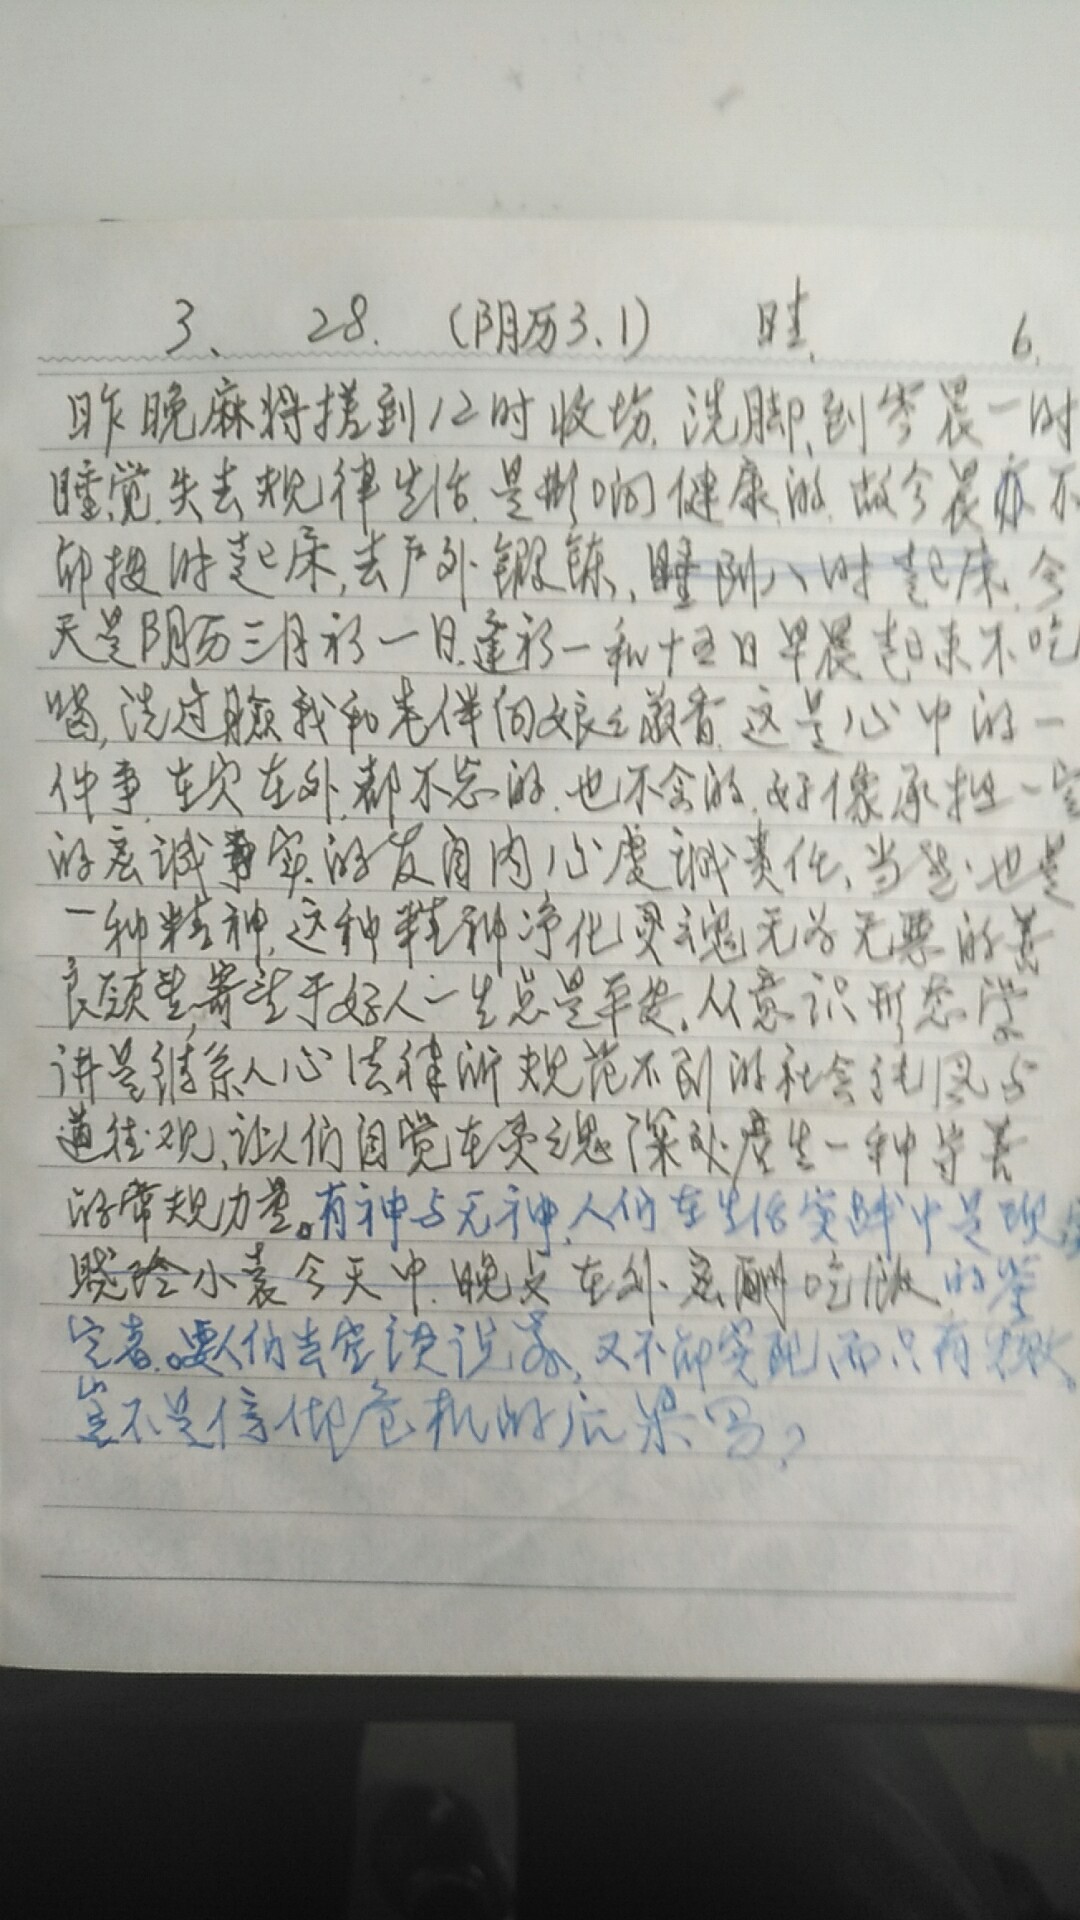 3、 28. (阴历3.1) 晴. 6.
昨晚麻将搓到12时收场.洗脚,到今晨一时
睡觉.失去规律生活.是影响健康的.故今晨亦不
能按时起床,去户外锻炼,睡到八时起床.今
天是阴历三月初一日.逢初一和十五日早晨起来不吃
喝,洗过脸我和老伴向娘娘敬香.这是心中的一
件事.在家在外.都不忘的.也不会的.好像承担一定
的忠诚事实的发自内心虔诚责任、当然也是
一种精神.这种精神净化灵魂无为无要的善
良愿望寄托于好人一生总是平安.从意识形态学
讲是维系人心法律所规范不到的社会风与
道德观,让人们自觉在灵魂深处产生一种守善
的常规力量。有神与无神,人们在生活实践中是
晓玲小袁今天中.晚点在外应酬吃饭 的鉴
定者.。要人们去空谈说家,又不能实现,而只有
岂不是信仰危机的后果吗?